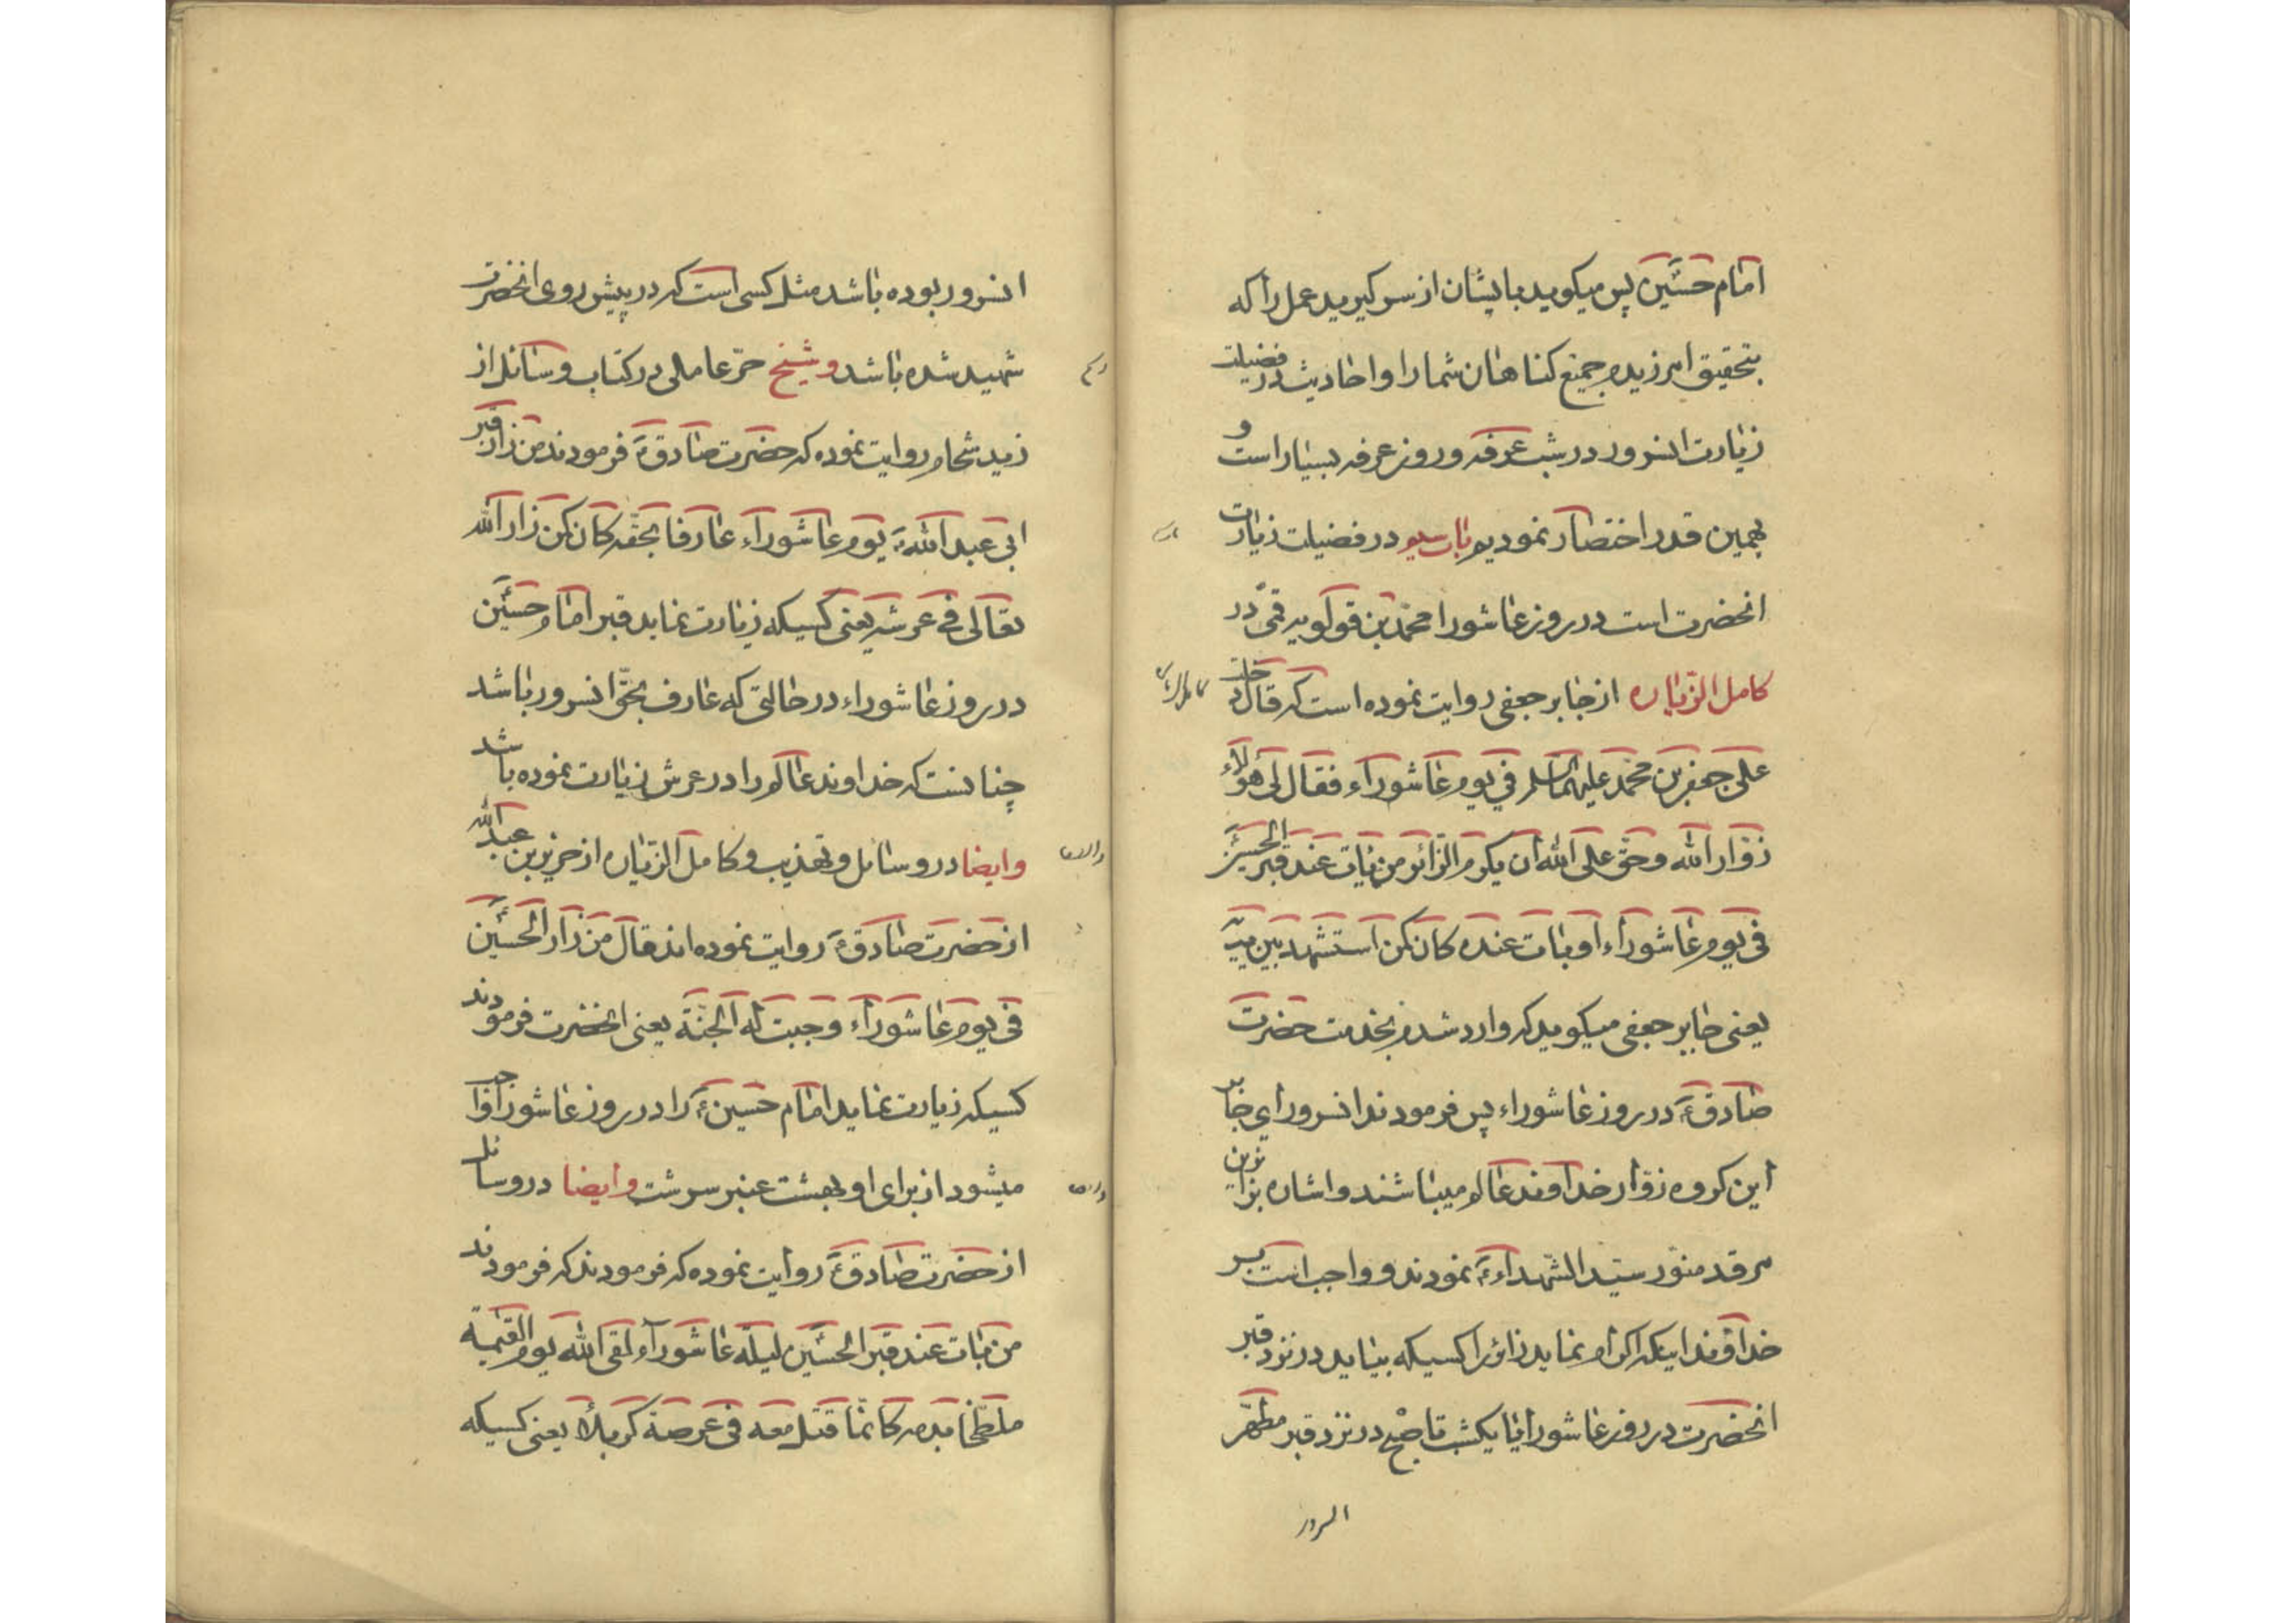 امام حسین پس میکوید بایشان از سر کیرید عمل را که
بتحقیق امرزیدم جمیع کناهان شما را و احادیث در فضیلت
زیارت انسرور در شب عرفه و روز عرفه بسیار است و
بهمین قدر اختصار نمودیم باب سیم در فضیلت زیارت
انحضرت است در روز عاشورا محمد بن قولویه قمی در
کامل الزیاره از جابر جعفی روایت نموده است که قال دخلت
علی جعفر بن محمد علیهما السلم فی یوم عاشوراء فقال لی هؤلاء
زوار الله و حق علی الله ان یکرم الزائر من بات عند قبر الحسین
فی یوم عاشوراء او بات عنده کان کمن استشهد بین یدیه
یعنی جابر جعفی میکوید که وارد شدم بخدمت حضرت
صادق ع در روز عاشوراء پس فرمودند انسرور ای جابر
این کروه زوار خداوند عالم میباشند و اشاره بزائرین
مرقد منور سید الشهداء ع نمودند و واجب است بر
خداوند اینکه اکرام نماید زائر را کسیکه بیتاید در نزد قبر
انحضرت در روز عاشورا یا یکشب تا صبح در نزد قبر مطهر
السرور
انسرور بوده باشد مثل کسی است که در پیش روی انحضرت
شهید شده باشد و شیخ حرّ عاملی در کتاب وسائل از
زید شحام روایت نموده که حضرت صادق ع فرمودند من زار قبر
ابی عبد الله ع یوم عاشوراء عارفا بحقه کان کمن زار الله
تعالی فی عرشه یعنی کسیکه زیارت نماید قبر امام حسین
در روز عاشوراء در حالتی که عارف بحق انسرور باشد
چنانست که خداوند عالم را در عرش زیارت نموده باشد
وایضا در وسائل و تهذیب و کامل الزیاره از حریز بن عبد الله
از حضرت صادق ع روایت نموده اند قال من زار الحسین
فی یوم عاشوراء وجبت له الجنة یعنی انحضرت فرمودند
کسیکه زیارت نماید امام حسین ع را در روز عاشورا واجب
میشود از برای او بهشت عنبر سرشت وایضا در وسائل
از حضرت صادق ع روایت نموده که فرمودند که فرمودند
من بات عند قبر الحسین لیلة عاشوراء لقی الله یوم القیمة
ملطخا بدمه کانما قتل معه فی عرصة کربلا یعنی کسیکه